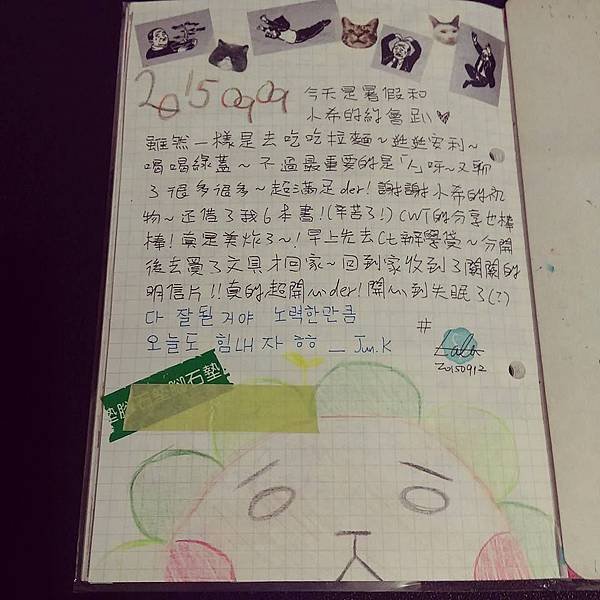 20150909
今天是暑假和
小希的約會趴♥
雖然一樣是去吃吃拉麵~逛逛安利~
喝喝綠蓋~不過最重要的是「人呀~又聊
了很多很多~超滿足der!謝謝小希的礼
物~还借了我6本書!(辛苦了!)CWT的分享也棒
棒!真是美炸了~!早上先去Ct解學貸~分開
後去買了文具才回家~回到家收到了關關的
明信片!!真的超開心der!開心到失眠了(?)
다 잘될거야 노력한만큼
오늘도 힘내자 ㅎㅎ _ Jun.K
#
Lala
20150912
墊腳石墊腳石墊